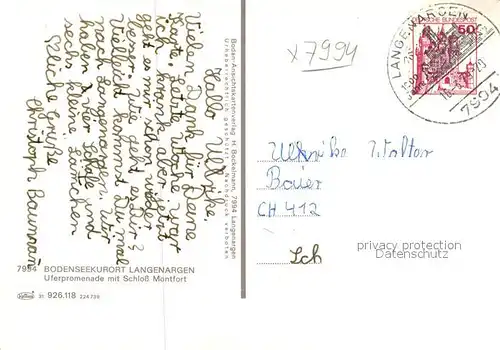 Hallo Ulrike,
Vielen Dank für Deine
Karte. Letzte Woche war
ich krank aber jetzt
geht es mir schon wieder
besser. Wie geht es Dir?
Vielleicht kommst Du mal
nach Langenargen. Wir
haben 2 für und
sechs kleine
Christoph Baumann
Boden-Ansichtskartenverlag H. Bockelmann, 7994 Langenargen
Urheberrechtlich geschützt · Nachdruck verboten
7994 BODENSEEKURORT LANGENARGEN
Uferpromenade mit Schloß Montfort
31 926.118 224 735
x 7994
LANGENARGEN
7994
DEUTSCHE BUNDESPOST
50
Baier
CH 412
Sch
privacy protection
Datenschutz